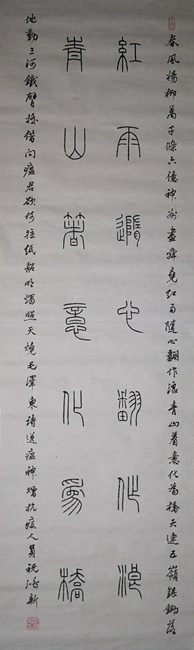 春風楊柳萬千條六億神州盡舜堯紅雨隨心翻作浪青山着意化爲橋天連五嶺銀鋤落
紅雨隨心翻作浪
青山著意化爲橋
地動三河鐵臂搖借問瘟君欲何往紙船明燭照天燒毛澤東詩送瘟神贈抗疫人員